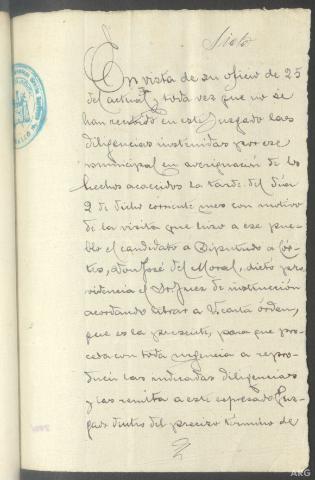 Siete
En vista de su oficio de 25
del actual y toda vez que no se
han recibido en este Juzgado las
diligencias instruidas por ese
municipal en averiguación de los
hechos acaecidos la tarde del día
2 de dicho corriente mes con motivo
de la visita que hizo a ese pue-
blo el candidato a Diputado a Cór-
tes, don José del Moral, dictó pro-
videncia el Sr Juez de instrucción
acordando librar a V. carta órden,
que es la presente, para que pro-
ceda con toda urgencia a repro-
ducir las indicadas diligencias
y las remita a este espresado Juz-
gado dentro del preciso término de
ARG